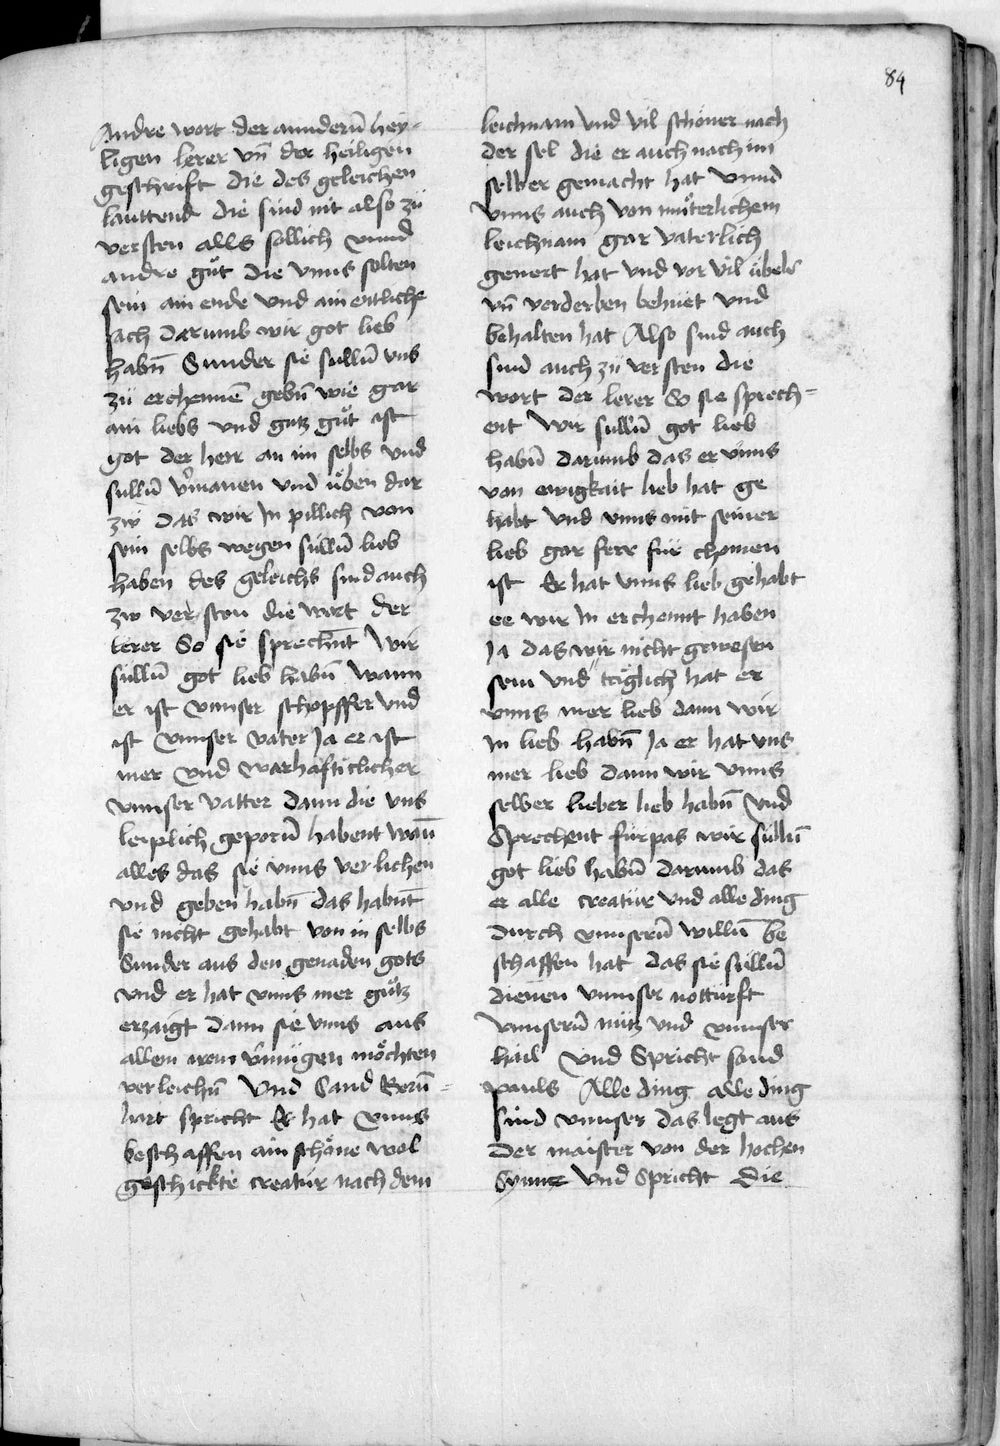 84
Andre wort der annderñ hey-
ligen lerer vñ der heiligen
geschrift die des geleichen
lauttend die sind nit also zü
versten alls sollich vnnd
andre gůt die vnns solten
sein ain ende vnd ain entliche
sach darumb wir got lieb
habñ Sunder sie sullñ vns
zü erchennē gebñ wie gar
ain liebs vnd gutz gůt ist
got der herr an im selbs vnd
sullñ v̉manen vnd ůben dar
zw das wir In pillich von
sein selbs wegen süllñ lieb
haben des geleichs sind auch
zw versten die wort der
lerer So sie sprechñt Wir
süllñ got lieb habñ Wann
er ist vnnser schopffer vnd
ist vnnser vater Ja er ist
mer vnd warhafticlicher
vnnser vatter dann die vns
leiplich geporñ habent wañ
alles das sie vnns verlichen
vnd geben habñ das habñt
sie nicht gehabt von in selbs
Sunder aus den genaden gots
vnd er hat vnns mer gůtz
erzaigt dann sie vnns aus
allem irem v̉mügen möchten
verleichñ Vnd Sand Bernñ-
hart spricht Er hat vnns
beschaffen ain schöne wol
geschickte creatür nach dem
leichnam vnd vil schöner nach
der sel die er auch nach im
selber gemacht hat vnnd
vnns auch von můterlichem
leichnam gar vaterlich
genert hat vnd vor vil übels
vñ verderben behüet vnd
behalten hat Also sind auch
sind auch zü versten die
wort der lerer So sie sprech=
ent Wir sullñ got lieb
habñ darumb das er vnns
von ewigkait lieb hat ge
habt vnd vnns mit seiner
lieb gar ferr für chomen
ist Er hat vnns lieb gehabt
ee wir In erchennt haben
Ja das wir nicht gewesen
sein vnd täglich hat er
vnns mer lieb dann wir
In lieb habñ Ja er hat vns
mer lieb dann wir vnns
selber lieber lieb habñ Vnd
Sprechent fürpas wir süllñ
got lieb habñ darumb das
er alle creatür vnd alle ding
durch vnnserñ willñ be
schaffen hat das sie süllñ
dienen vnnser notturft
Vnnserñ nütz vnd vnnser
hail Vnd Spricht sand
pauls Alle ding alle ding
sind vnnser das legt aus
Der maister von der hochen
Synne Vnd Spricht Die